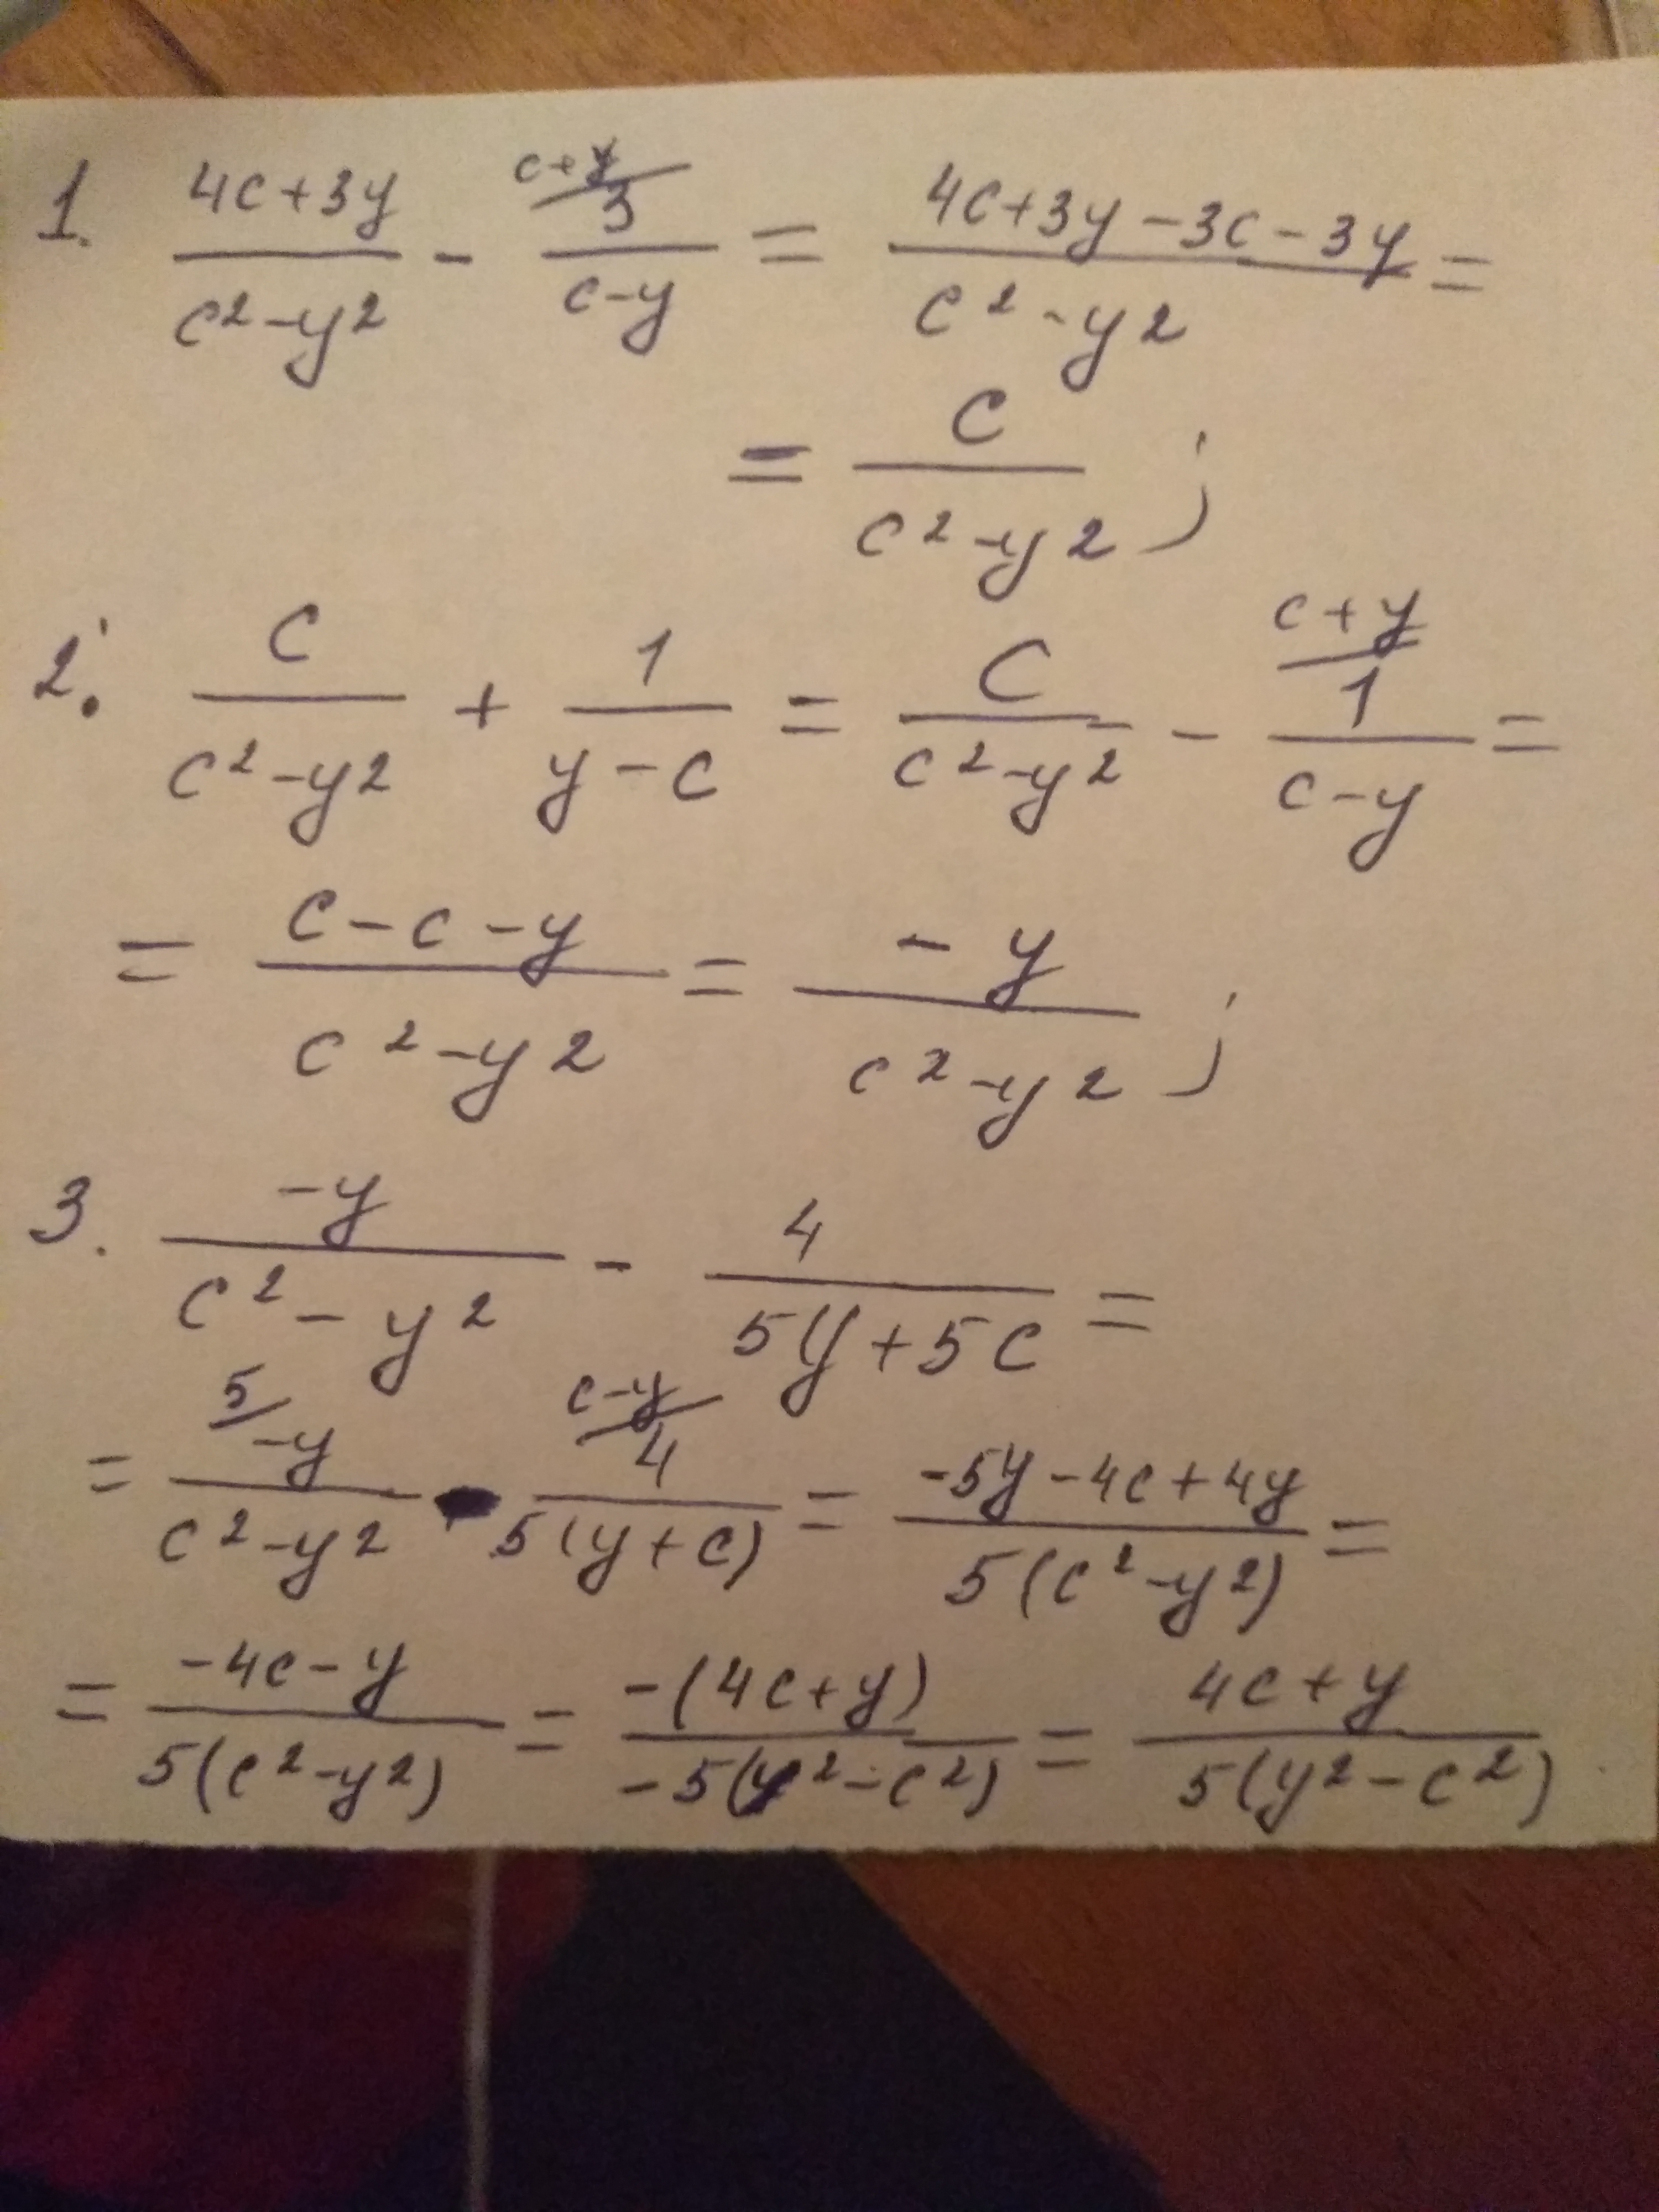 1. (4c+3y)/(c²-y²) - (c+y/ 3)/(c-y) = (4c+3y-3c-3y)/(c²-y²) =
= c/(c²-y²) ;
2. c/(c²-y²) + 1/(y-c) = c/(c²-y²) - (c+y/ 1)/(c-y) =
= (c-c-y)/(c²-y²) = -y/(c²-y²) ;
3. -y/(c²-y²) - 4/(5y+5c) =
= (5/ -y)/(c²-y²) - (c-y/ 4)/(5(y+c)) = (-5y-4c+4y)/(5(c²-y²)) =
= (-4c-y)/(5(c²-y²)) = -(4c+y)/(-5(y²-c²)) = (4c+y)/(5(y²-c²)).